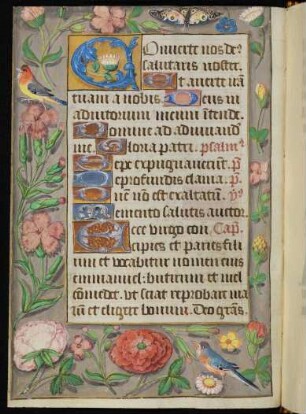 Converte nos de⁹
salutaris noster.
Et averte irā
tuam a nobis Deus in
adiutorium meum intende.
Domine ad adiuvand
me. Gloria patri. psalm⁹
Sepe expugnaverunt. p̄
De profundis clama. p̄.
ne nō est exaltatum. ỹ
Memento salutis auctor.
Ecce virgo con Cap̄.
cipies et paries fili
um et vocabitur nomen eius
emmanuel: butirum et mel
comedet. vt sciat reprobare ma
lū et eligere bonum. Deo grās.